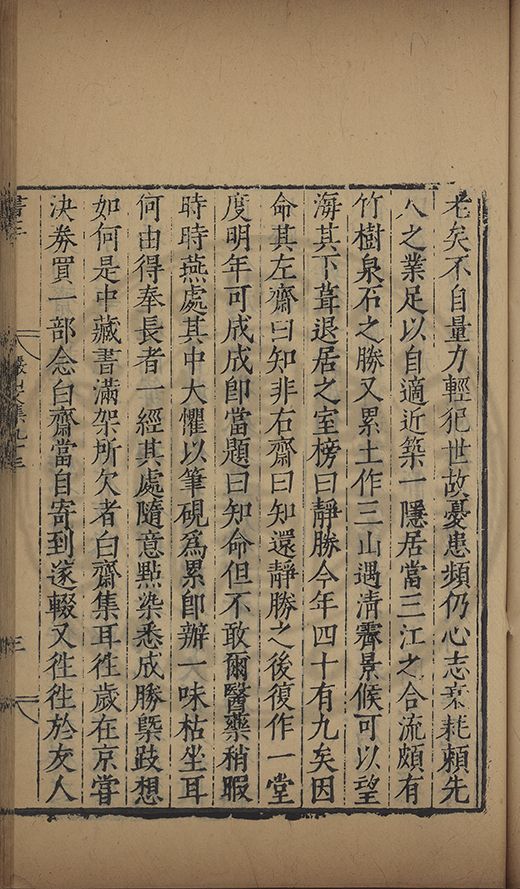 老矣不自量力輕犯世故憂患頻仍心志衰耗頼先
人之業足以自適近築一隱居當三江之合流頗有
竹樹泉石之勝又累土作三山遇清霽景候可以望
海其下葺退居之室榜曰靜勝今年四十有九矣因
命其左齋曰知非右齋曰知還靜勝之後復作一堂
度明年可成成卽當題曰知命但不敢爾醫藥稍暇
時時燕處其中大懼以筆硯爲累卽辦一味枯坐耳
何由得奉長者一經其處隨意點染悉成勝槩跂想
如何是中藏書滿架所欠者白齋集耳徃歲在京嘗
決劵買一部念白齋當自寄到遂輟又徃徃於友人